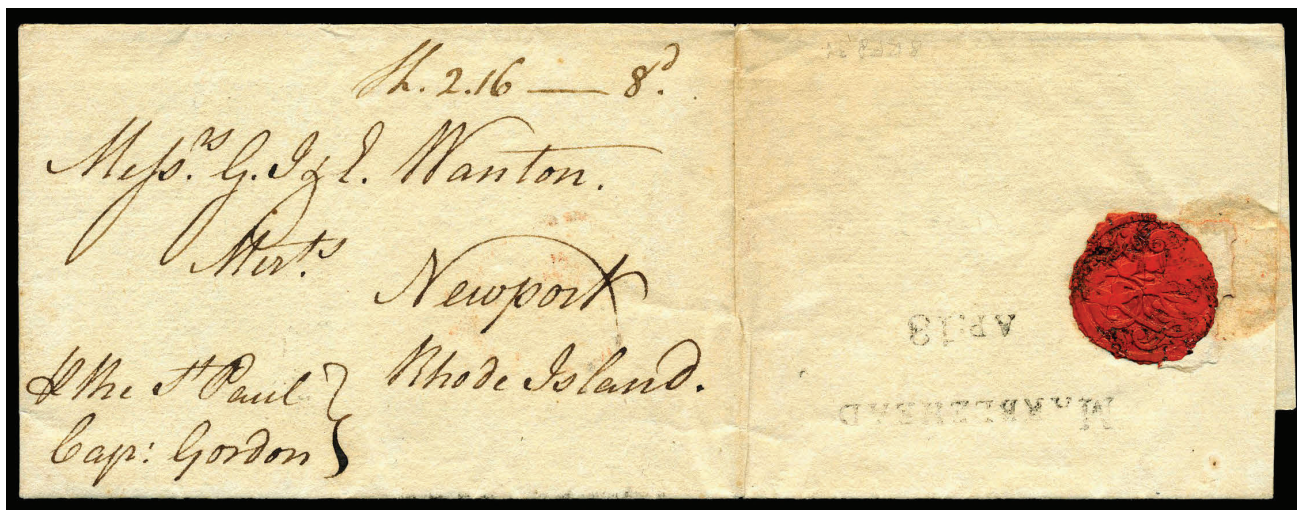 Sh. 2.16 — 8.d
Messrs. G. J & E. Wanton.
Merts.
Newport
Rhode Island.
the St Paul
Cap: Gordon
AP:18
MARBLEHEAD